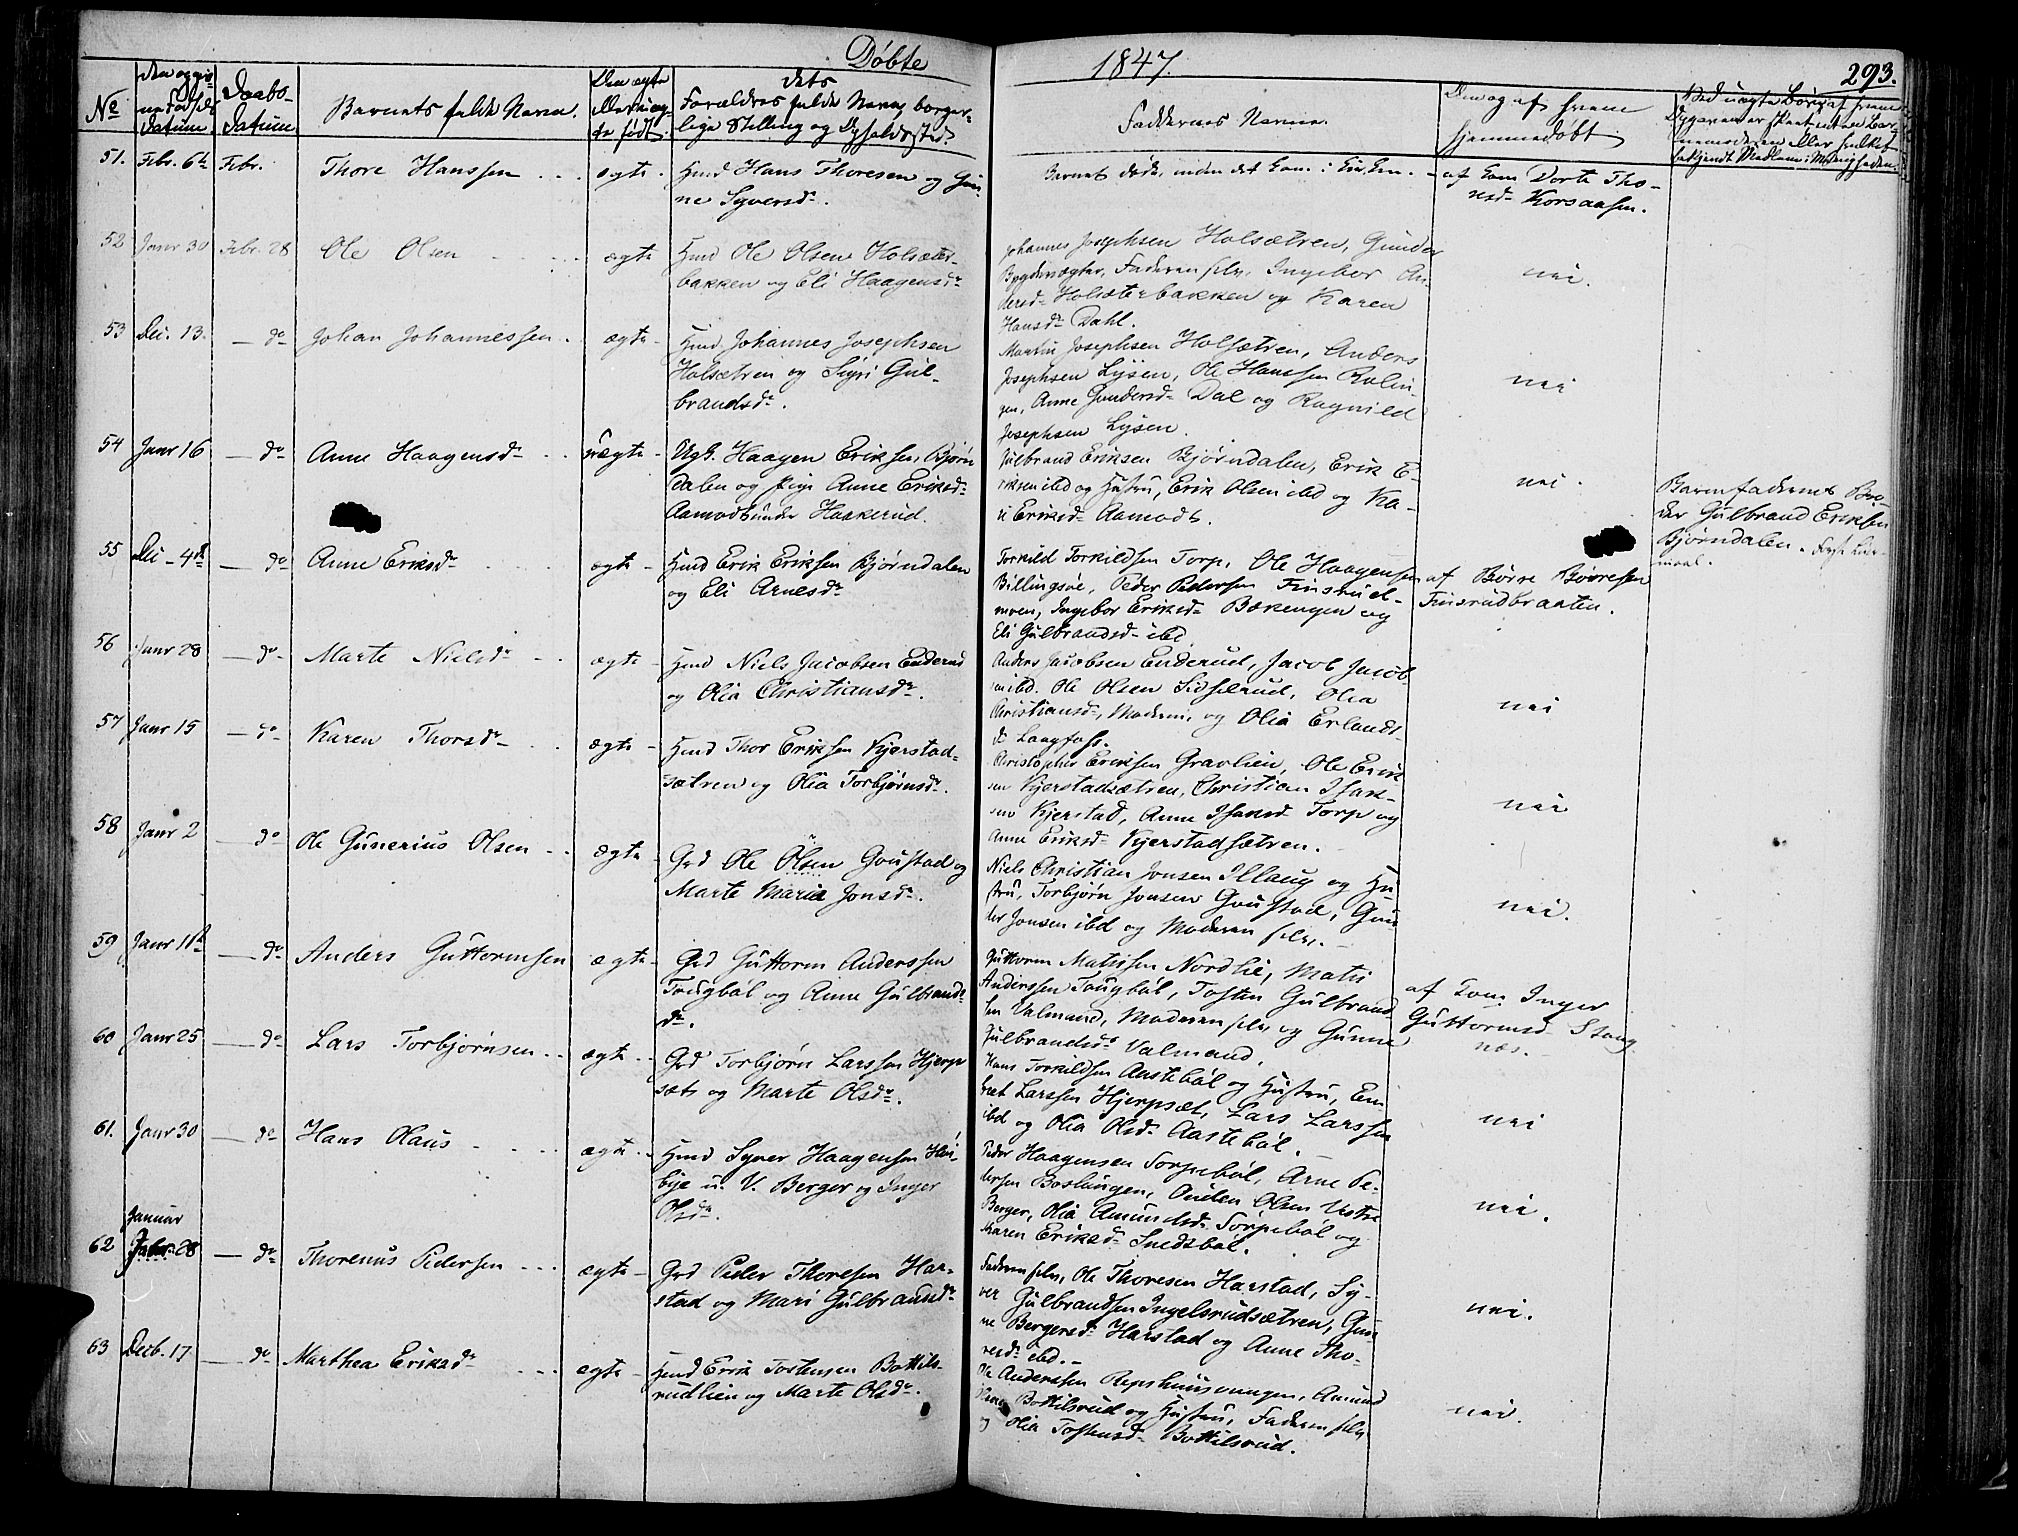 Døbte 1847. 293.
No
Den opgiv-
ne Fødsels
Datum
Daabs-
Datum
Barnets fulde Navn.
Om ægte
eller uæg-
te født.
dets
Forældres fulde Navne, borger-
lige Stilling og Opholdssted.
Faddernes Navne.
Om og af hvem
hjemmedøbt
51. Febr. 6te Febr. Thore Hanssen ægte.
Hmd Hans Thoresen og Gun-
ne Syversdr.
Barnet døde, inden det kom i Kirken.
af Dorte Tho-
resdr Korsaasen.
52 Janr 30 Febr. 28 Ole Olsen ægte
Hmd Ole Olsen Holsæter-
bakken og Eli Haagensdr
Johannes Josephsen Holsætren, Gunder
Faderen selv, Ingebor An-
dersdr Holsæterbakken og Karen
Hansdr Dahl.
nei.
53 Dec. 13. do Johan Johannessen. ægte
Hmd Johannes Josephsen
Holsætren og Sigri Gul-
brandsdr.
Martin Josephsen Holsætren, Anders
Josephsen Lysen, Ole Hanssen
Anne Gundersdr Dal og Ragnild
Josephsen Lysen.
nei
54 Janr 16 do Anne Haagensdr uægte
Ugk. Haagen Eriksen Bjørn
dalen og Pige Anne Eriksdr
Aamodt under Haakerud.
Gulbrand Eriksen Bjørndalen, Erik E-
riksen ibd og Hustru, Erik Olsen ibd og Ka-
ri Eriksdr Aamodt.
nei.
Barnefaderens Bro-
der Gulbrand Eriksen
Bjørndalen. Første Leier-
maal.
55 Dec 4de do Anne Eriksdr ægte
Hmd Erik Eriksen Bjørndalen
og Eli Arnesdr
Torkild Torkildsen Torp, Ole Haagensen
Billingsøe, Peder Pedersen Finsrud-
moen, Ingebor Eriksdr Bækengen og
Eli Gulbrandsdr ibd
af Børre Børresen
Finsrudbraaten.
56 Janr 28 do Marte Nielsdr ægte
Hmd Niels Jacobsen Enderud
og Olia Christiansdr.
Anders Jacobsen Enderud, Jacob Jacob-
sen ibd. Ole Olsen Sidselrud, Olia
Christiansdr, Moderen, og Olia Erlands-
dr Langfoss.
nei
57 Janr 15 do Karen Thorsdr ægte
Hmd Thor Eriksen Kjerstad-
sætren og Olia Torbjørnsdr.
Christopher Eriksen Gravlien, Ole Erik
sen Kjerstadsætren, Christian Isak-
sen Kjerstad, Anne Isaksdr Torp og
Anne Eriksdr Kjerstadsætren.
nei
58 Janr 2 do Ole Gunerius Olsen ægte
Grd Ole Olsen Goustad og
Marte Maria Jonsdr.
Niels Christian Jonsen Illaug og Hu-
stru, Torbjørn Jonsen Goustad, Gun
der Jonsen ibd og Moderen selv.
nei.
59 Janr 11te do Anders Guttormsen ægte
Grd Guttorm Anderssen
Taugbøl og Anne Gulbrands
dr.
Guttorm Mathisen Nordlie, Matis
Anderssen Taugbøl, Tosten Gulbrand
sen Valmand, Moderen selv og Gunne
Gulbrandsdr Valmand.
af Inger
Guttormsd Stang
næs.
60 Janr 25 do Lars Torbjørnsen ægte
Grd Torbjørn Larssen Hjerp
sæt og Marte Olsdr.
Hans Torkildsen Aastebøl og Hustru, En-
bret Larssen Hjerpsæt, Lars Larssen
ibd og Olia Olsdr Aastebøl.
nei
61. Janr 30 do Hans Olaus ægte
Hmd Syver Haagensen
bye u. V. Berger og Inger
Olsdr.
Peder Haagensen Torpebøl, Arne Pe-
dersen Boslungen, Olsen Vestre
Berger, Olia Amundsdr Torpebøl og
Karen Eriksdr Snedsbøl.
nei.
62 Januar
28 do Thorenus Pedersen ægte
Grd Peder Thoresen Har-
stad og Mari Gulbrandsdr
Faderen selv, Ole Thoresen Harstad, Sy-
ver Gulbrandsen Ingelsrudsætren, Gun
ne Bergersdr Harstad og Anne Tho-
resdr ibd.
nei.
63 Decb. 17 do Marthea Eriksdr ægte
Hmd Erik Tostensen Bottils-
rudlien og Marte Olsdr.
Ole Anderssen Repshuusvangen, Amund
Bottilsrud og Hustru, Faderen selv
og Olia Tostensdr Bottilsrud.
nei.